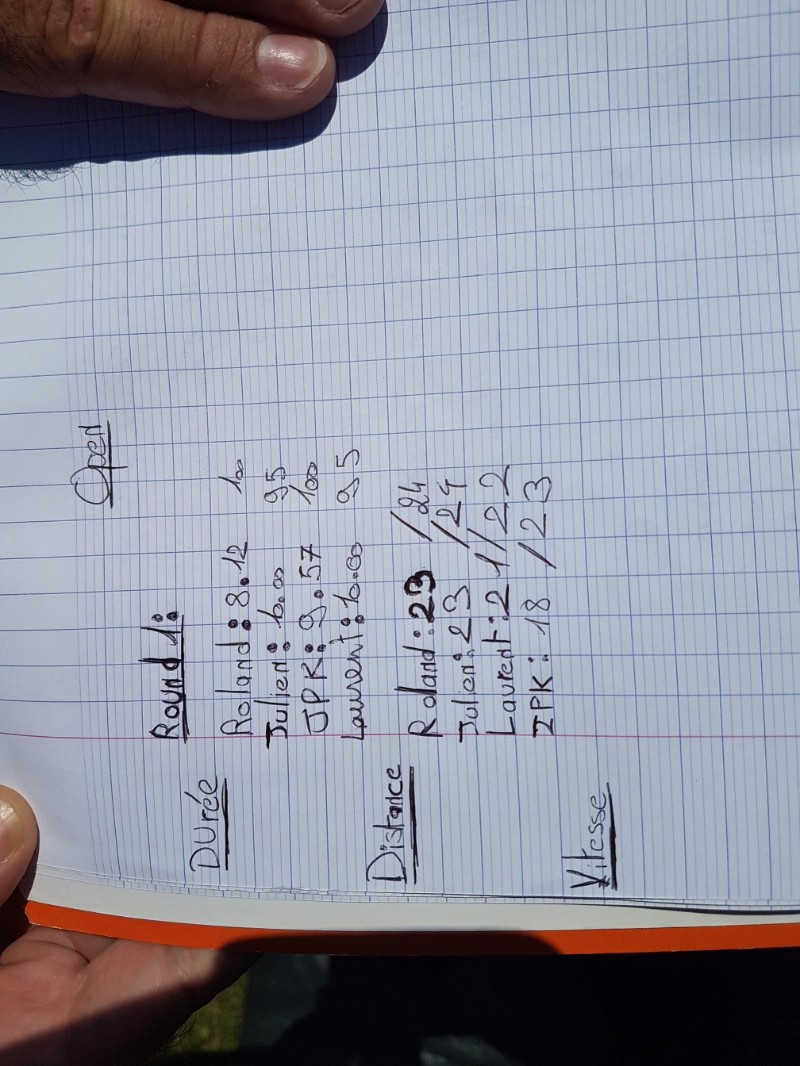 Open
Round 1:
Durée
Roland : 8.12 100
Julien : 10.00 95
JPK : 9.57 100
Laurent : 10.00 95
Distance
Roland : 23 /24
Julien : 23 /24
Laurent : 21 /22
JPK : 18 /23
Vitesse